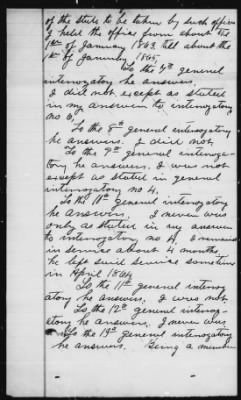 of the state to be taken by such officer
I held the office from about the
1st of January 1863 till about the
1st of January 1865.
To the 7th general
interrogatory he answers
I did not except as stated
in my answer to interrogatory
no 6.
To the 8th general interrogatory
he answers. I did not
To the 9th general interroga-
tory he answers, I was not
except as stated in general
interrogatory no 4.
To the 10th general interrogatory
he answers. I never was
only as stated in my answer
to interrogatory no 4, I remained
in service about 4 months
he left said service sometime
in April 1864
To the 11th general interrog
atory he answers, I was not.
To the 12th general interrog-
atory he answers, I never was
To the 13th general interrogatory
he answers. Being a member